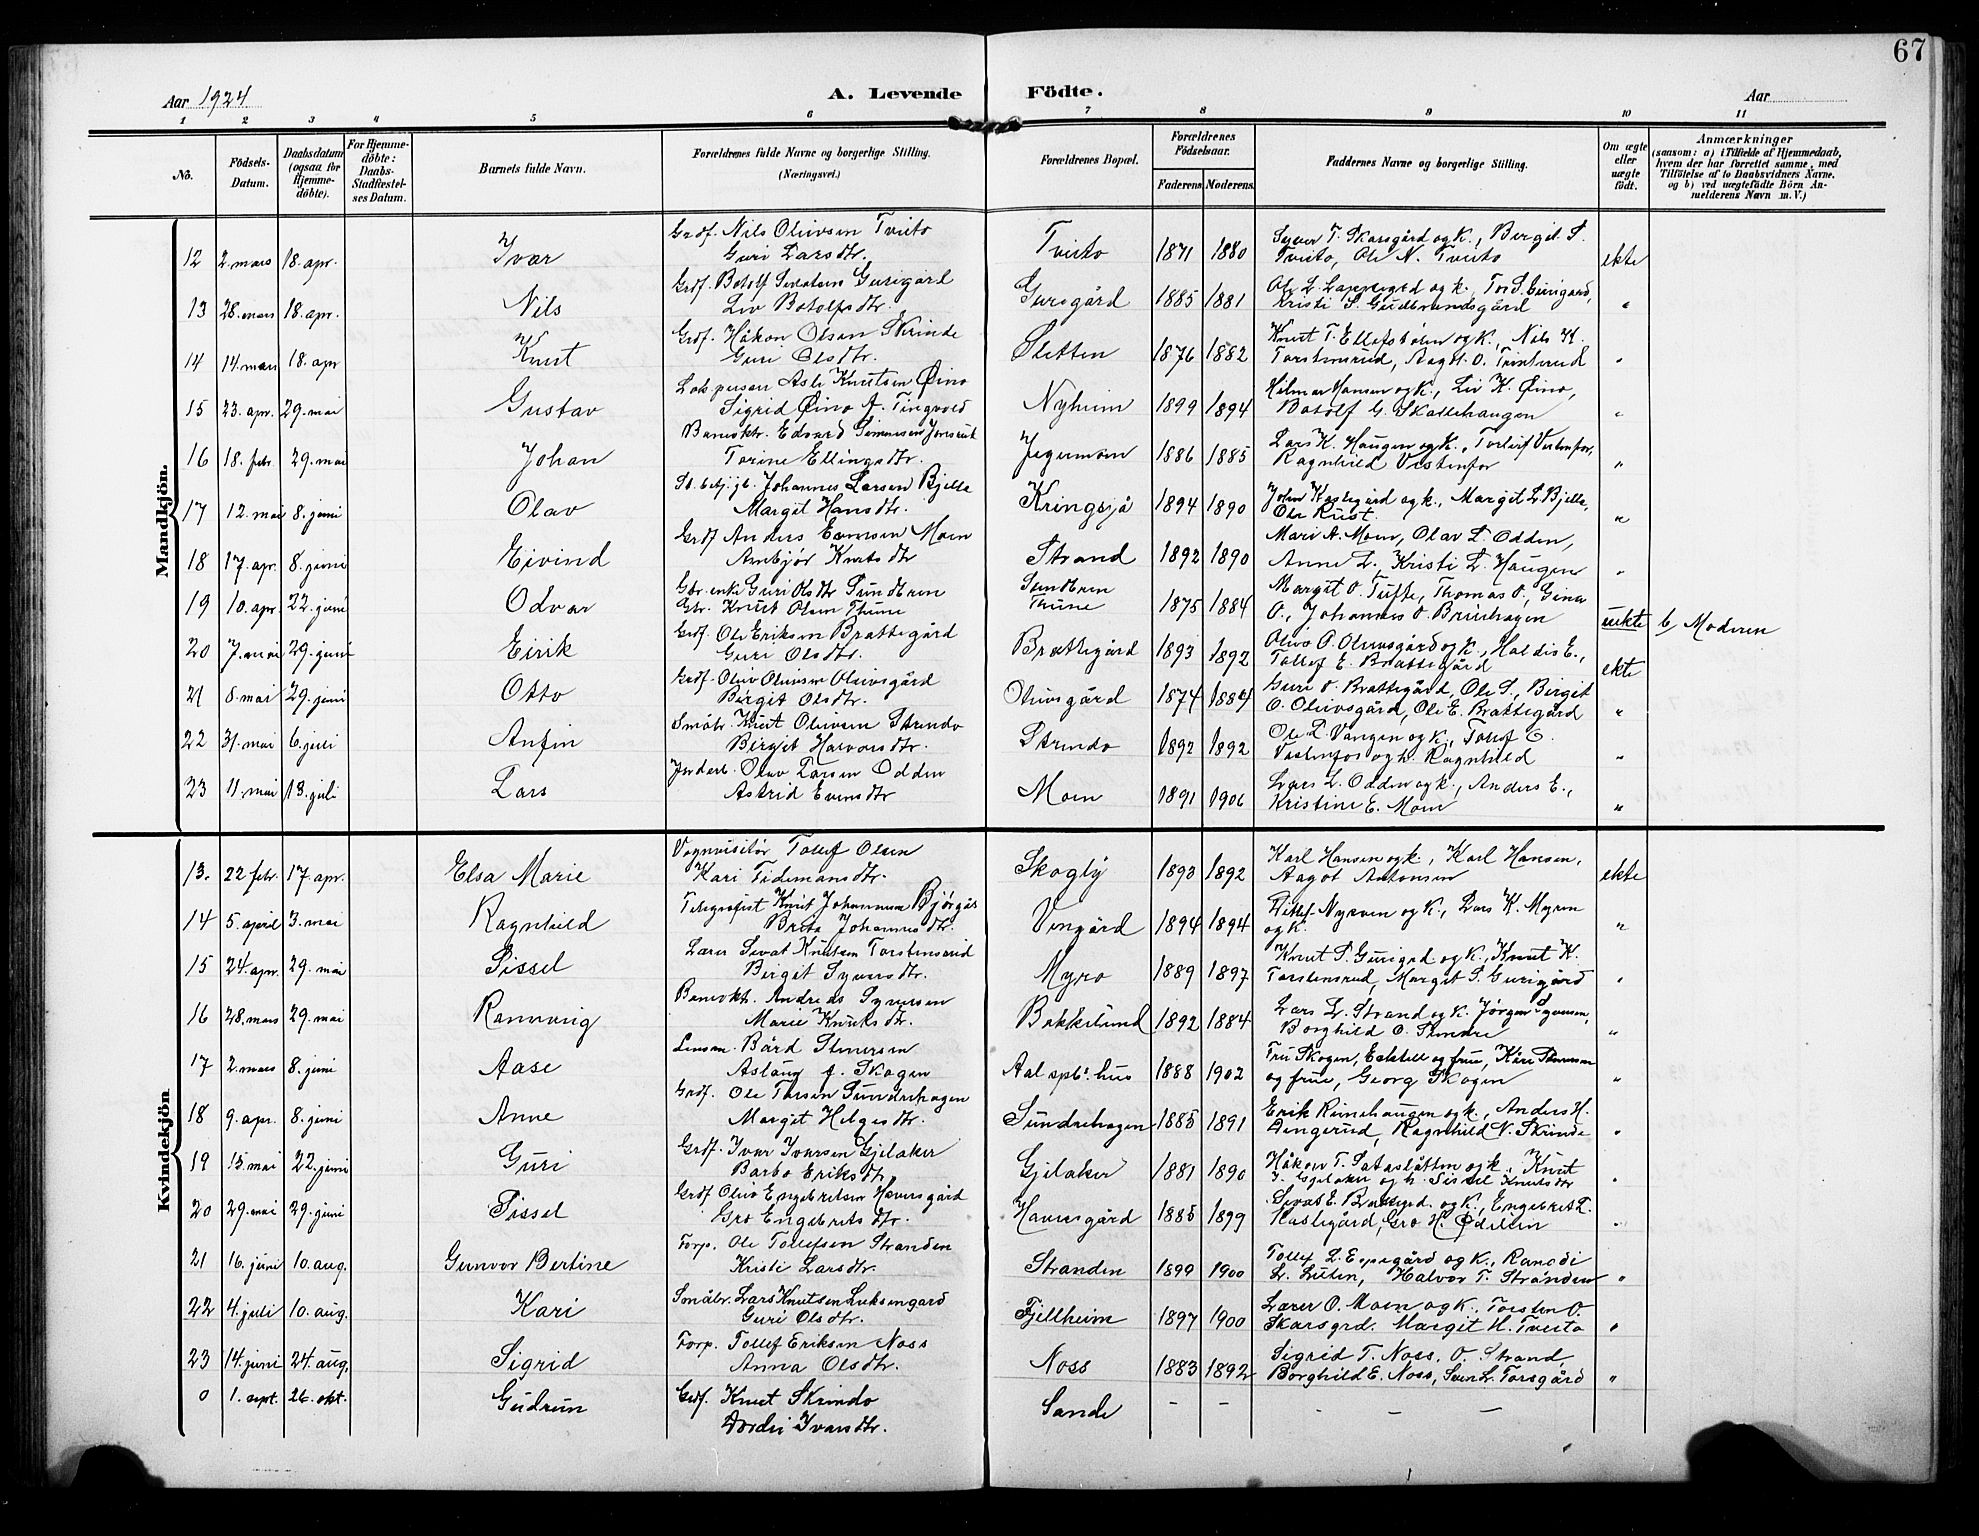 67
Aar 1924 A. Levende Födte. Aar
1 2 3 4 5 6 7 8 9 10 11
No. Födsels-Datum. Daabsdatum (ogsaa for Hjemme-döbte). For Hjemme-döbte: Daabs-Stadfæstel-ses Datum. Barnets fulde Navn. Forældrenes fulde Navne og borgerlige Stilling. (Næringsvei.) Forældrenes Bopæl. Forældrenes Födselsaar. Faderens Moderens. Faddernes Navne og borgerlige Stilling. Om ægte eller uægte födt. Anmærkninger (saasom: a) i Tilfælde af Hjemmedaab, hvem der har forrettet samme, med Tilföielse af to Daabsvidners Navne. og b) ved uægtefödte Börn An-melderens Navn m. V.)
Mandkjön.
Grdf. Nils Olivsen Tveito Syver T. Skarsgård og k., Birgit S.
12 2. mars 18. apr. Ivar Guri Larsdtr. Tveito 1871 1880 Tveito, Ole N. Tveito ekte
Grdf. Botolf Gurigård Ole L. og k., Tor S. Gurigård,
13 28. mars 18. apr. Nils Liv Botolfsdtr. Gurigård 1885 1881 Kristi S. Gudbrandsgård "
Grdf. Håkon Olsen Skrinde Knut T. og k., Nils H.
14 14. mars 18. apr Knut Guri Olsdtr. Sletten 1876 1882 Torstensrud, Aagot O. "
Asle Knutsen Øino Hilmar Hansen og k., Liv K. Øino,
15 23. apr. 29. mai Gustav Sigrid Øino f. Tingvold Nyheim 1899 1894 Botolf G. Skattehaugen "
Banevktr. Edvard Simensen Lars K. Haugen og k., Torleif Vestenfor,
16 18. febr. 29. mai Johan Torine Ellingsdtr. Jegermoen 1886 1885 Ragnhild Vestenfor "
Johannes Larsen Bjella John Kaslegård og k., Margit L. Bjella,
17 12. mai 8. juni Olav Margit Hansdtr. Kringsjå 1894 1890 Ole Rust. "
Grdf Anders Evensen Moen Mari A. Moen, Olav L. Odden,
18 17. apr. 8. juni Eivind Annbjør Knutsdtr Strand 1892 1890 Anne L., Kristi L. Haugen "
Gbr. enke Guri Olsdtr Sundbren Sundbren Margit O. Tufte, Thomas O., Gina
19 10. apr. 22. juni Odvar Gbr. Knut Olsen Thune Thune 1875 1884 O., Johannes O. Brenhagen uekte b, Moderen
Grdf. Ole Eriksen Brattegård Olivo O. Olivsgård og k., Haldis E.,
20 7. mai 29. juni Eirik Guri Olsdtr. Brattegård 1893 1892 Tollef E. Brattegård ekte
Grdf. Oliv Olivsen Olivsgård Guri O. Brattegård, Ole S., Birgit
21 8. mai 29. juni Otto Birgit Olsdtr. Olivsgård 1874 1884 O. Olivsgård, Ole E. Brattegård "
Småbr. Knut Olivsen Strindo Ole L. Vangen og k., Tollef E.
22 31. mai 6. juli Anfin Birgit Halvorsdtr. Strindo 1892 1892 Vestenfor og h. Ragnhild "
Inderb. Olav Larsen Odden Lars L. Odden og k., Anders E.,
23 11. mai 13. juli Lars Astrid Evensdtr Moen 1891 1906 Kristine E. Moen "
Kvindekjön
Vognvisitör Tollef Olsen Karl Hansen og k., Karl Hansen,
13. 22 febr. 17. apr. Elsa Marie Kari Tidemansdtr. Skogly 1893 1892 Aagot Antonsen ekte
Telegrafist Knut Johannesen Bjørgås Detlef Nyreen og k., Lars K. Myren
14 5. april 3. mai Ragnhild Brita Johannesdtr. Vengård 1894 1894 og k. "
Lærer Sevat Knutsen Torstensrud Knut S. Gurigrd og k., Knut K.
15 24. apr. 29. mai Sissel Birgit Syversdtr. Myro 1889 1897 Torstensrud, Margit S. Gurigård "
Banevkt. Andreas Syversen Lars L. Strand og k. Jørgen Syversen,
16 28. mars 29. mai Rannveig Marie Knutsdtr. Bakkelund 1892 1884 Borghild O. Sundre "
Lensm. Bård Stenersen Fru Skogen, og frue, Kåre Stenersen
17 2. mars 8. juni Aase Aslaug f. Skogen Aal spb. hus 1888 1902 og frue, Georg Skogen "
Grdf. Ole Torsen Sundrehagen Erik Rimehaugen og k., Anders H.
18 9. apr. 8. juni Anne Margit Helgesdtr. Sundrehagen 1885 1891 Dengerud, Ragnhild N. Skrinde "
Grdf. Ivar Ivarsen Gjelaker Håkon T. Sataslåtten og k., Knut
19 15. mai 22. juni Guri Barbo Eriksdtr. Gjelaker 1881 1890 I. Gjelaker og h. Sissel Knutsdtr "
Grdf Olivo Engebretsen Haversgård Sevat E. og k., Engebret L.
20 29. mai 29. juni Sissel Gro Engebretsdtr. Haversgård 1885 1899 Kaslegård, Gro H. Ødelien "
Forp. Ole Tollefsen Stranden Tollef L. Espegård og k., Randi
21 16. juni 10. aug. Gunvor Bertine Kristi Larsdtr. Stranden 1899 1900 L. Lulen, Halvor T. Stranden "
Småbr. Lars Knutsen Luksengard Lærer O. Moen og k., Torsten O.
22 4. juli 10. aug. Kari Guri Olsdtr. Fjellheim 1897 1900 Skarsgrd. Margit H. Tveito "
Forp. Tollef Eriksen Noss Sigrid T. Noss, O. Strand,
23 14. juni 24. aug. Sigrid Anna Olsdtr. Noss 1883 1892 Borghild E. Noss, Sven L. Torsgård "
0 1. sept. 26. okt. Gudrun Grdf. Knut Skrindo Sande – – – – –
Dordei Ivarsdtr.